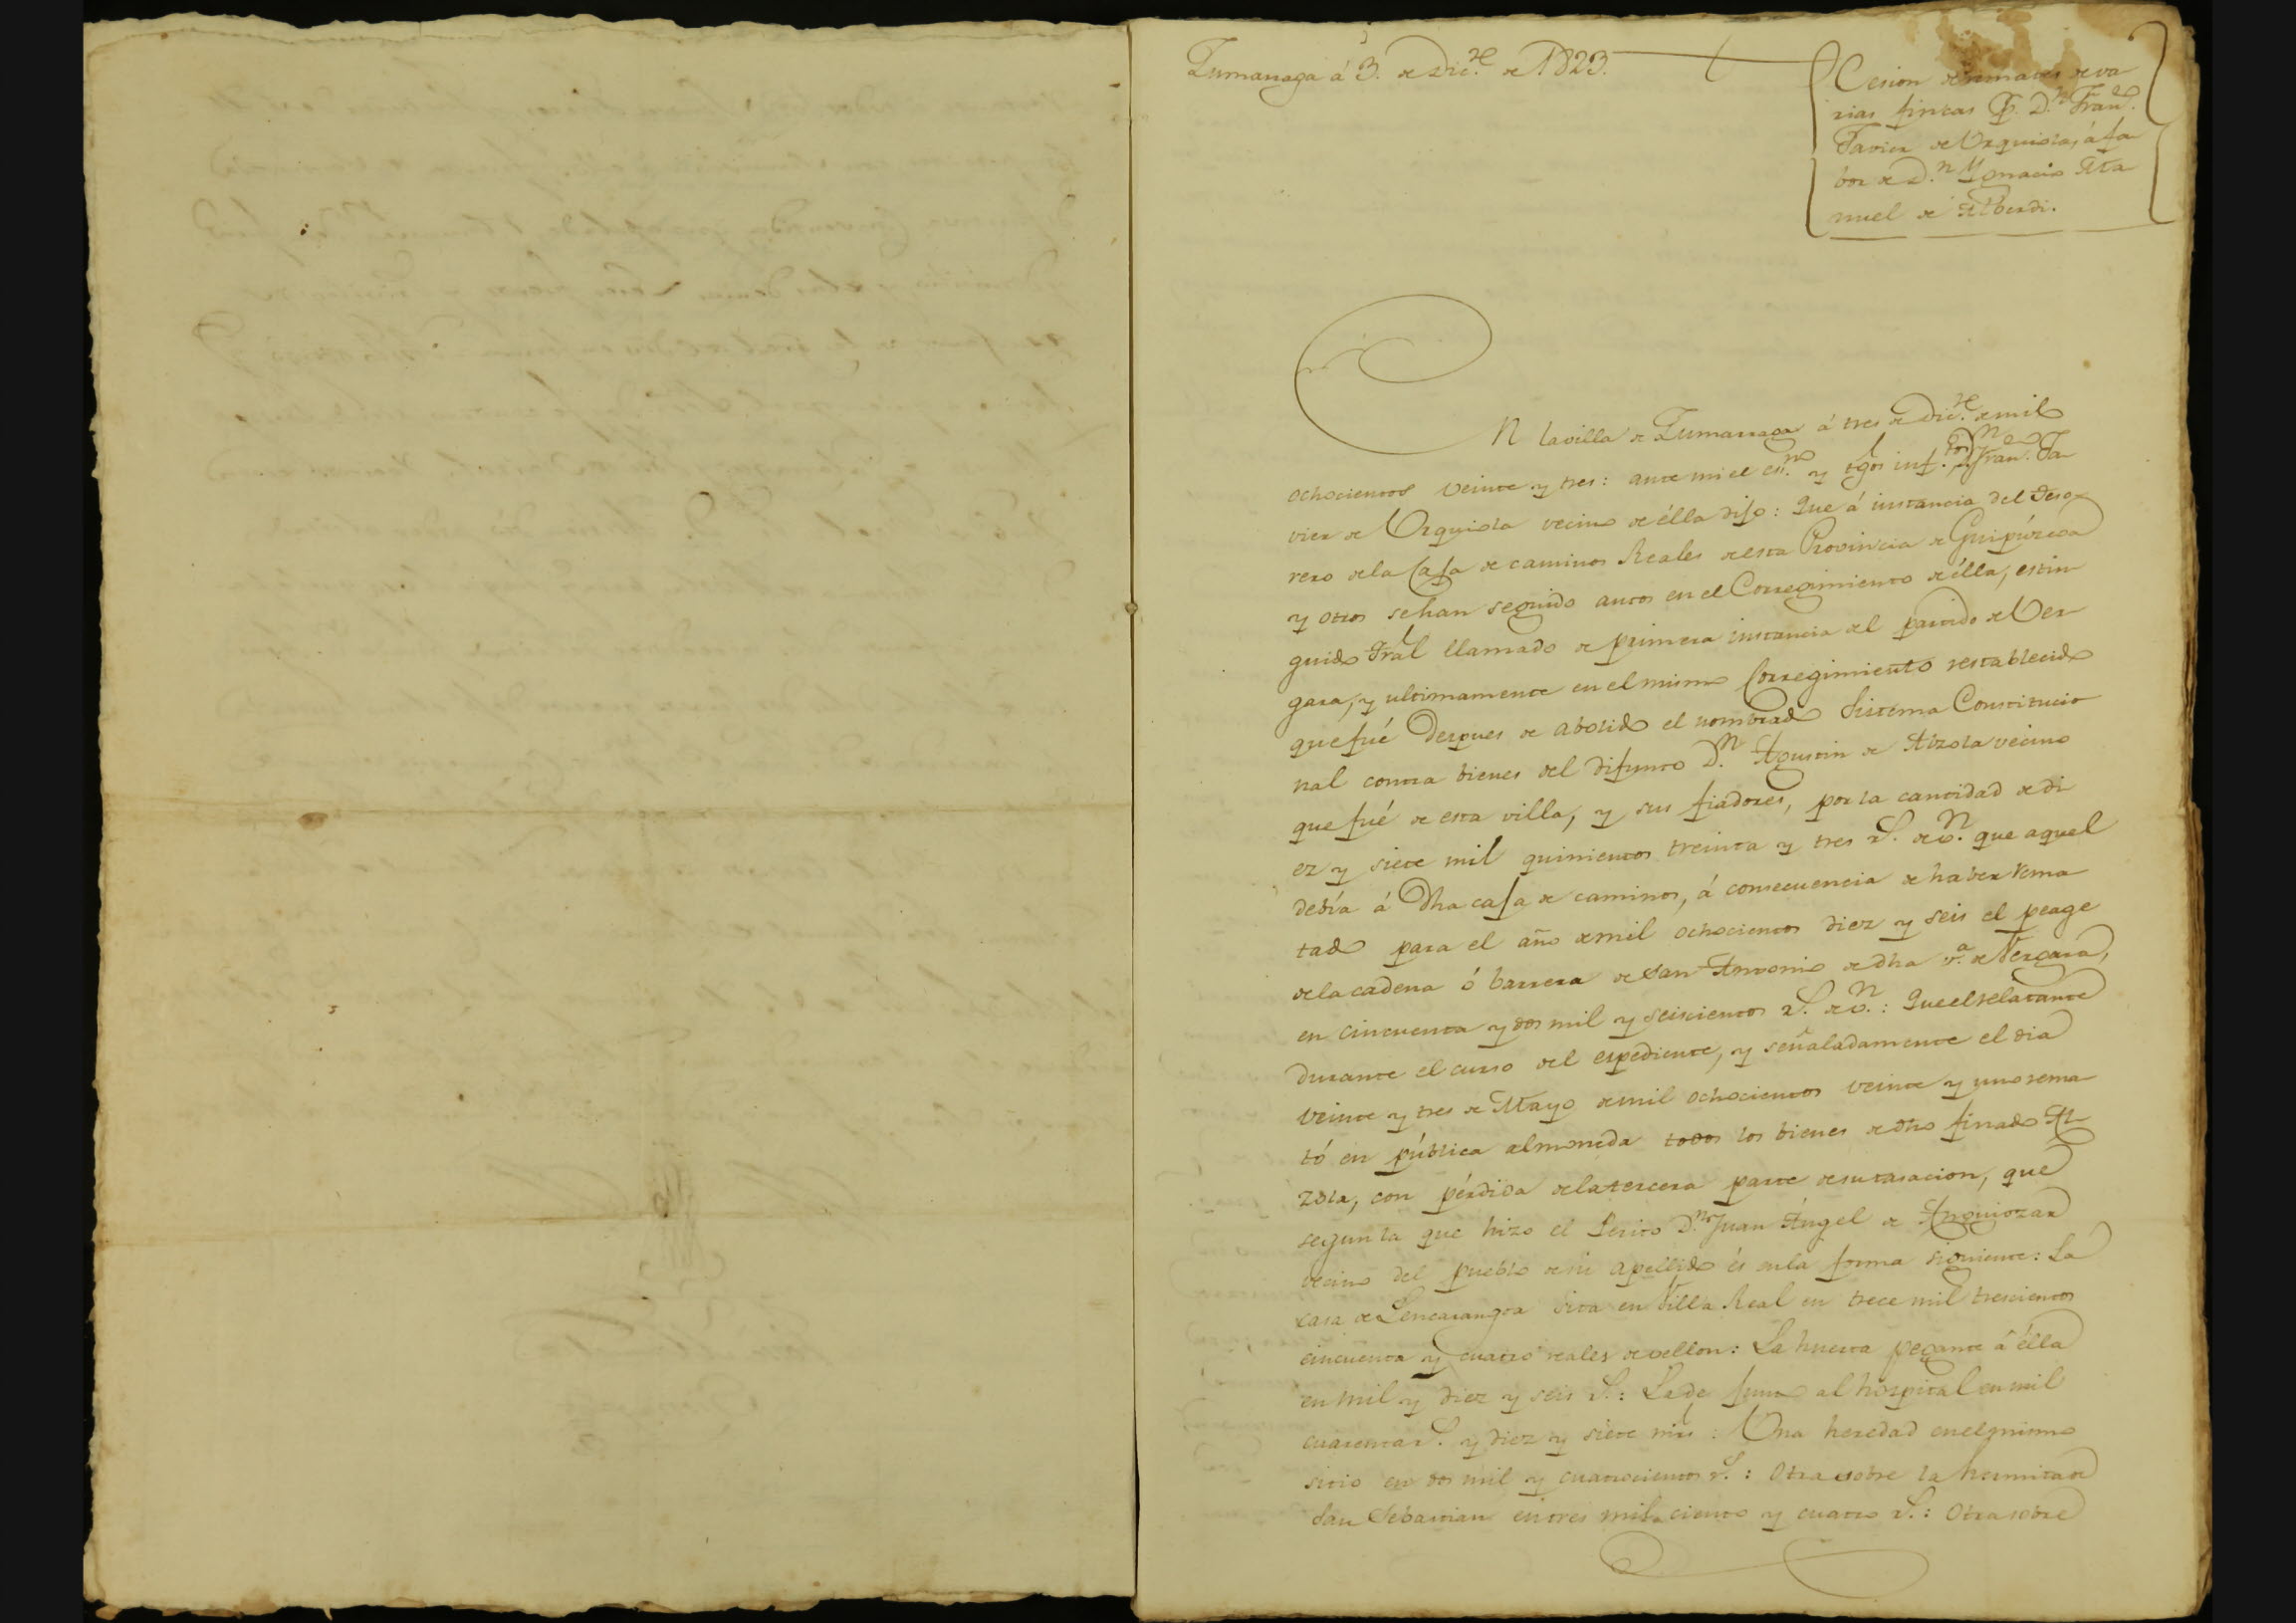 Zumarraga á 3. de Dic.re de 1823.
Cesion de remates de va
rias fincas P. D.n Fran.co
Javier de Urquiola, á fa
bor de D.n Ygnacio Ma
nuel de Alberdi.
EN la villa de Zumarraga á tres de Dic.re de mil
ochocientos veinte y tres: ante mi el es.no y tgos inf.tos D.n Fran.co Ja
vier de Urquiola vecino de élla dijo: Que á instancia del Teso
rero de la Casa de caminos Reales de esta Provincia de Guipúzcoa
y otros se han seguido autos en el Corregimiento de élla, estin
guido Tral llamado de primera instancia del partido de Ver
gara, y ultimamente en el mismo Corregimiento restablecido
que fué despues de abolido el nombrado Sistema Constitucio
nal contra bienes del difunto D.n Agustin de Alzola vecino
que fué de esta villa, y sus fiadores, por la cantidad de di
ez y siete mil quinientos treinta y tres r.s de v.n que aquel
debía á dha casa de caminos, á consecuencia de haber rema
tado para el año de mil ochocientos diez y seis el peage
de la cadena ó barrera de San Antonio de dha v.a de Vergara,
en cincuenta y dos mil y seiscientos r.s de v.n: Que el relatante
durante el curso del espediente, y señaladamente el dia
veinte y tres de Mayo de mil ochocientos veinte y uno rema
tó en pública almoneda todos los bienes de dho finado Al
zola, con pérdida de la tercera parte de su tasacion, que
segun la que hizo el Perito D.n Juan Ángel de Anguiozar
vecino del pueblo de su apellido és en la forma siguiente: La
casa de sita en Villa Real en trece mil trescientos
cincuenta y cuatro reales de vellon: La huerta pegante á élla
en mil y diez y seis r.s: La de junto al hospital en mil
cuarenta r.s y diez y siete mrs: Una heredad en el mismo
sitio en dos mil y cuatrocientos r.s: Otra sobre la hermita de
San Sebastian en tres mil ciento y cuatro r.s: Otra sobre